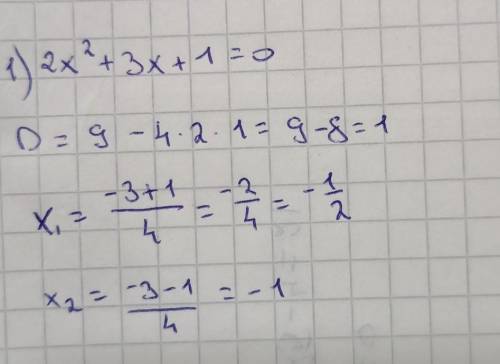 1) 2x² + 3x + 1 = 0
D = 9 - 4·2·1 = 9-8 = 1
x₁ = (-3+1)/4 = -2/4 = -1/2
x₂ = (-3-1)/4 = -1